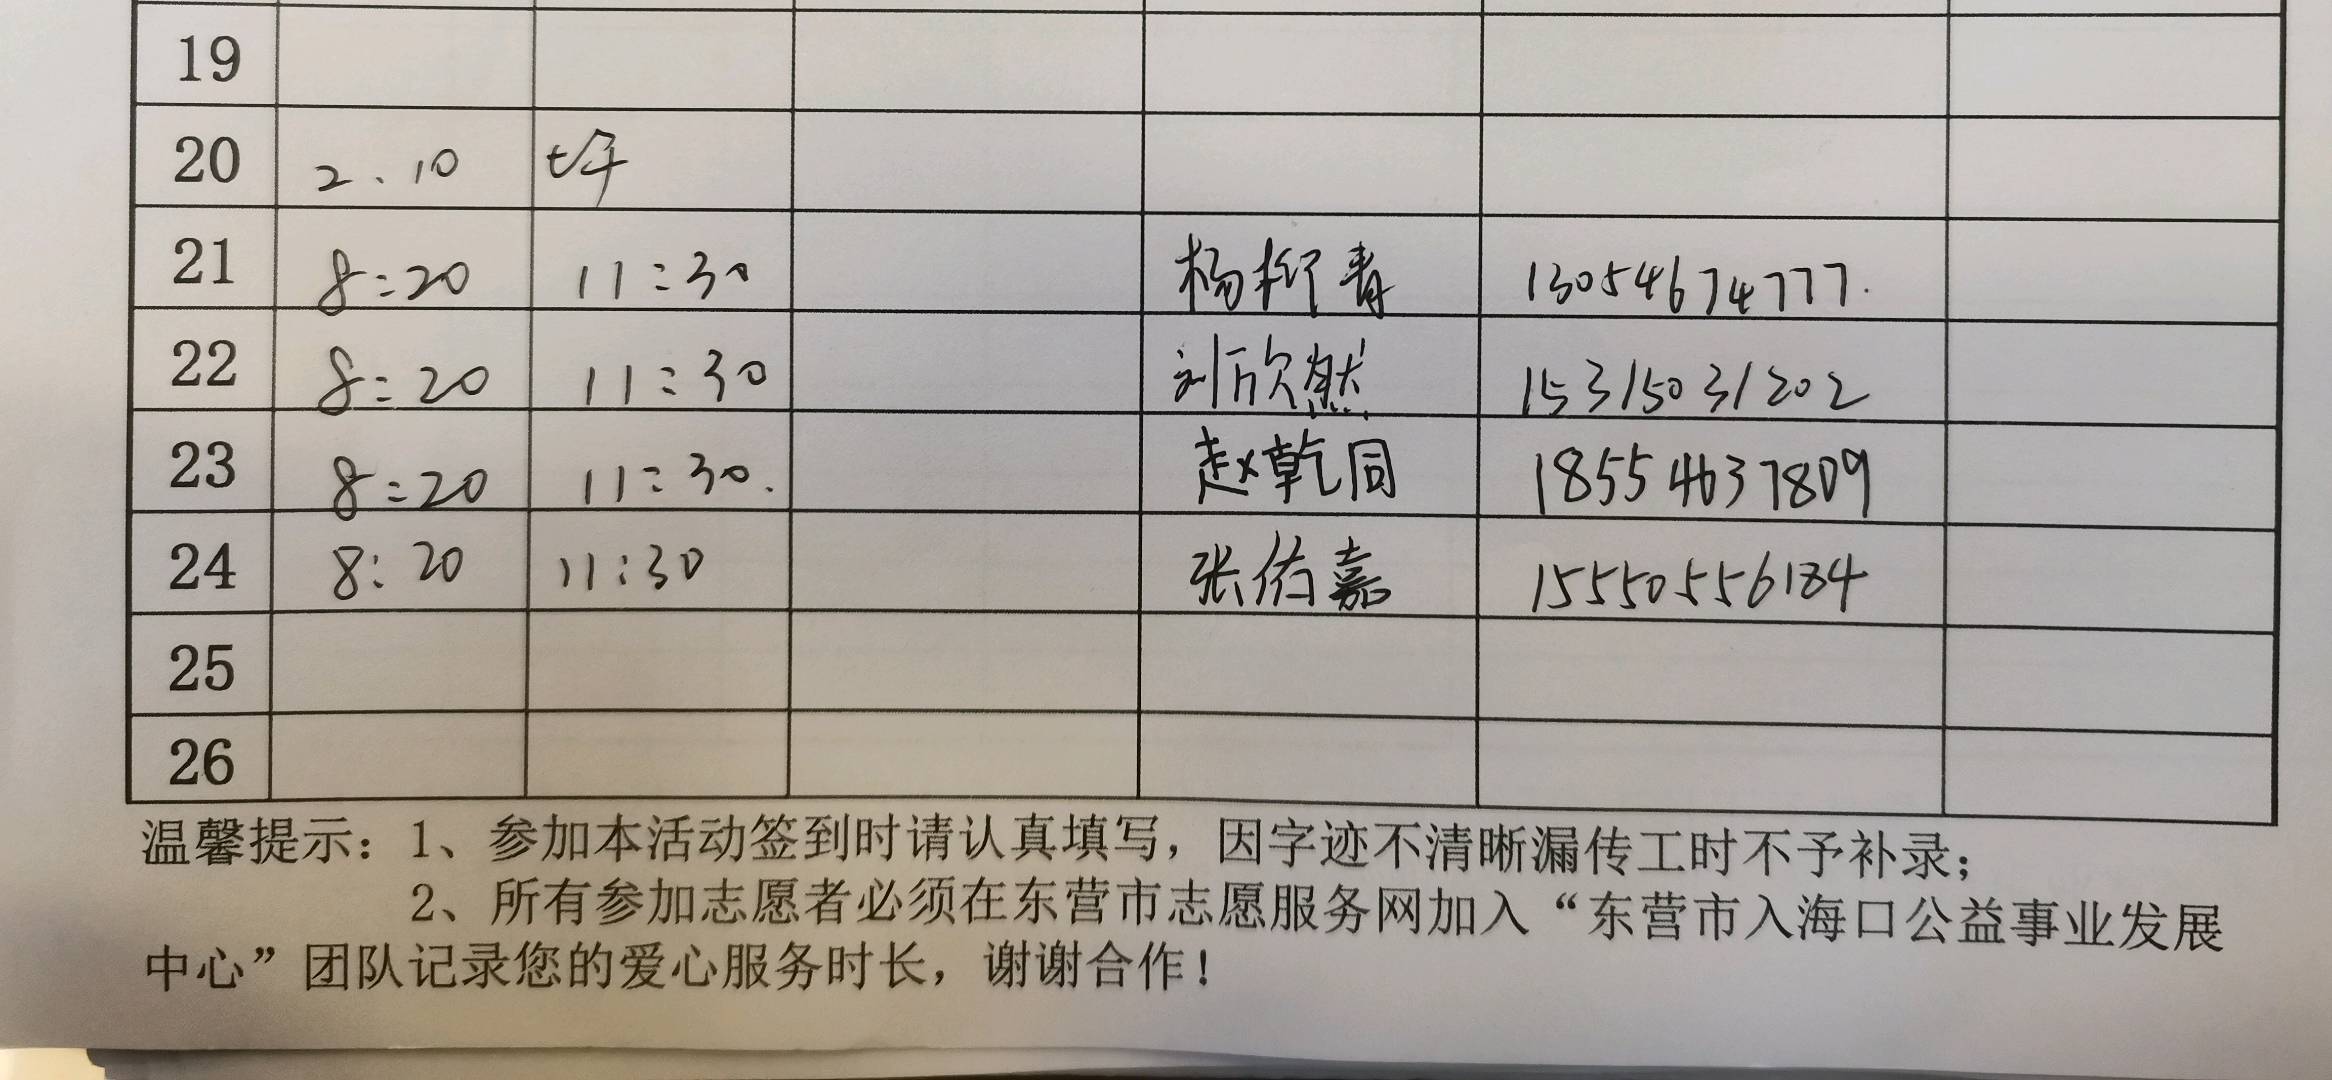 19
20 2.10 上午
21 8:20 11:30 杨柳青 13054674777.
22 8:20 11:30 刘欣然 15315031202
23 8:20 11:30. 赵乾同 18554637809
24 8:20 11:30 张佑嘉 15550556184
25
26
温馨提示：1、参加本活动签到时请认真填写，因字迹不清晰漏传工时不予补录；
2、所有参加志愿者必须在东营市志愿服务网加入“东营市入海口公益事业发展
中心”团队记录您的爱心服务时长，谢谢合作！